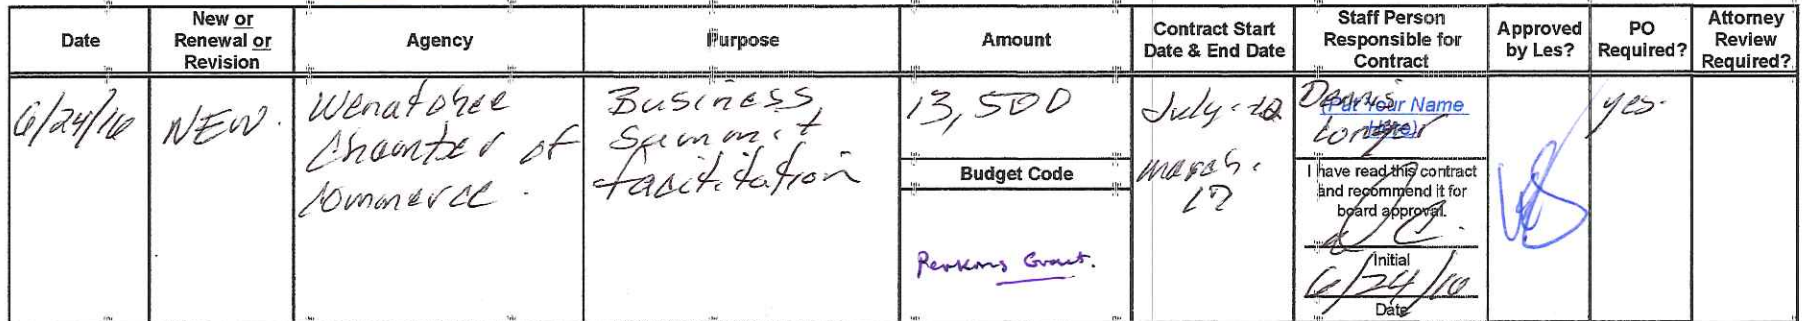 Date
New or
Renewal or
Revision
Agency
Purpose
Amount
Contract Start
Date & End Date
Staff Person
Responsible for
Contract
Approved
by Les?
PO
Required?
Attorney
Review
Required?
6/24/16
NEW.
Wenatchee
Chamber of
Commerce.
Business
Summit
facilitation
13,500
Budget Code
Perkins Grant.
July-
march-
17
Dennis
(Put Your Name
Here)
I have read this contract
and recommend it for
board approval.
Initial
6/24/16
Date
yes-